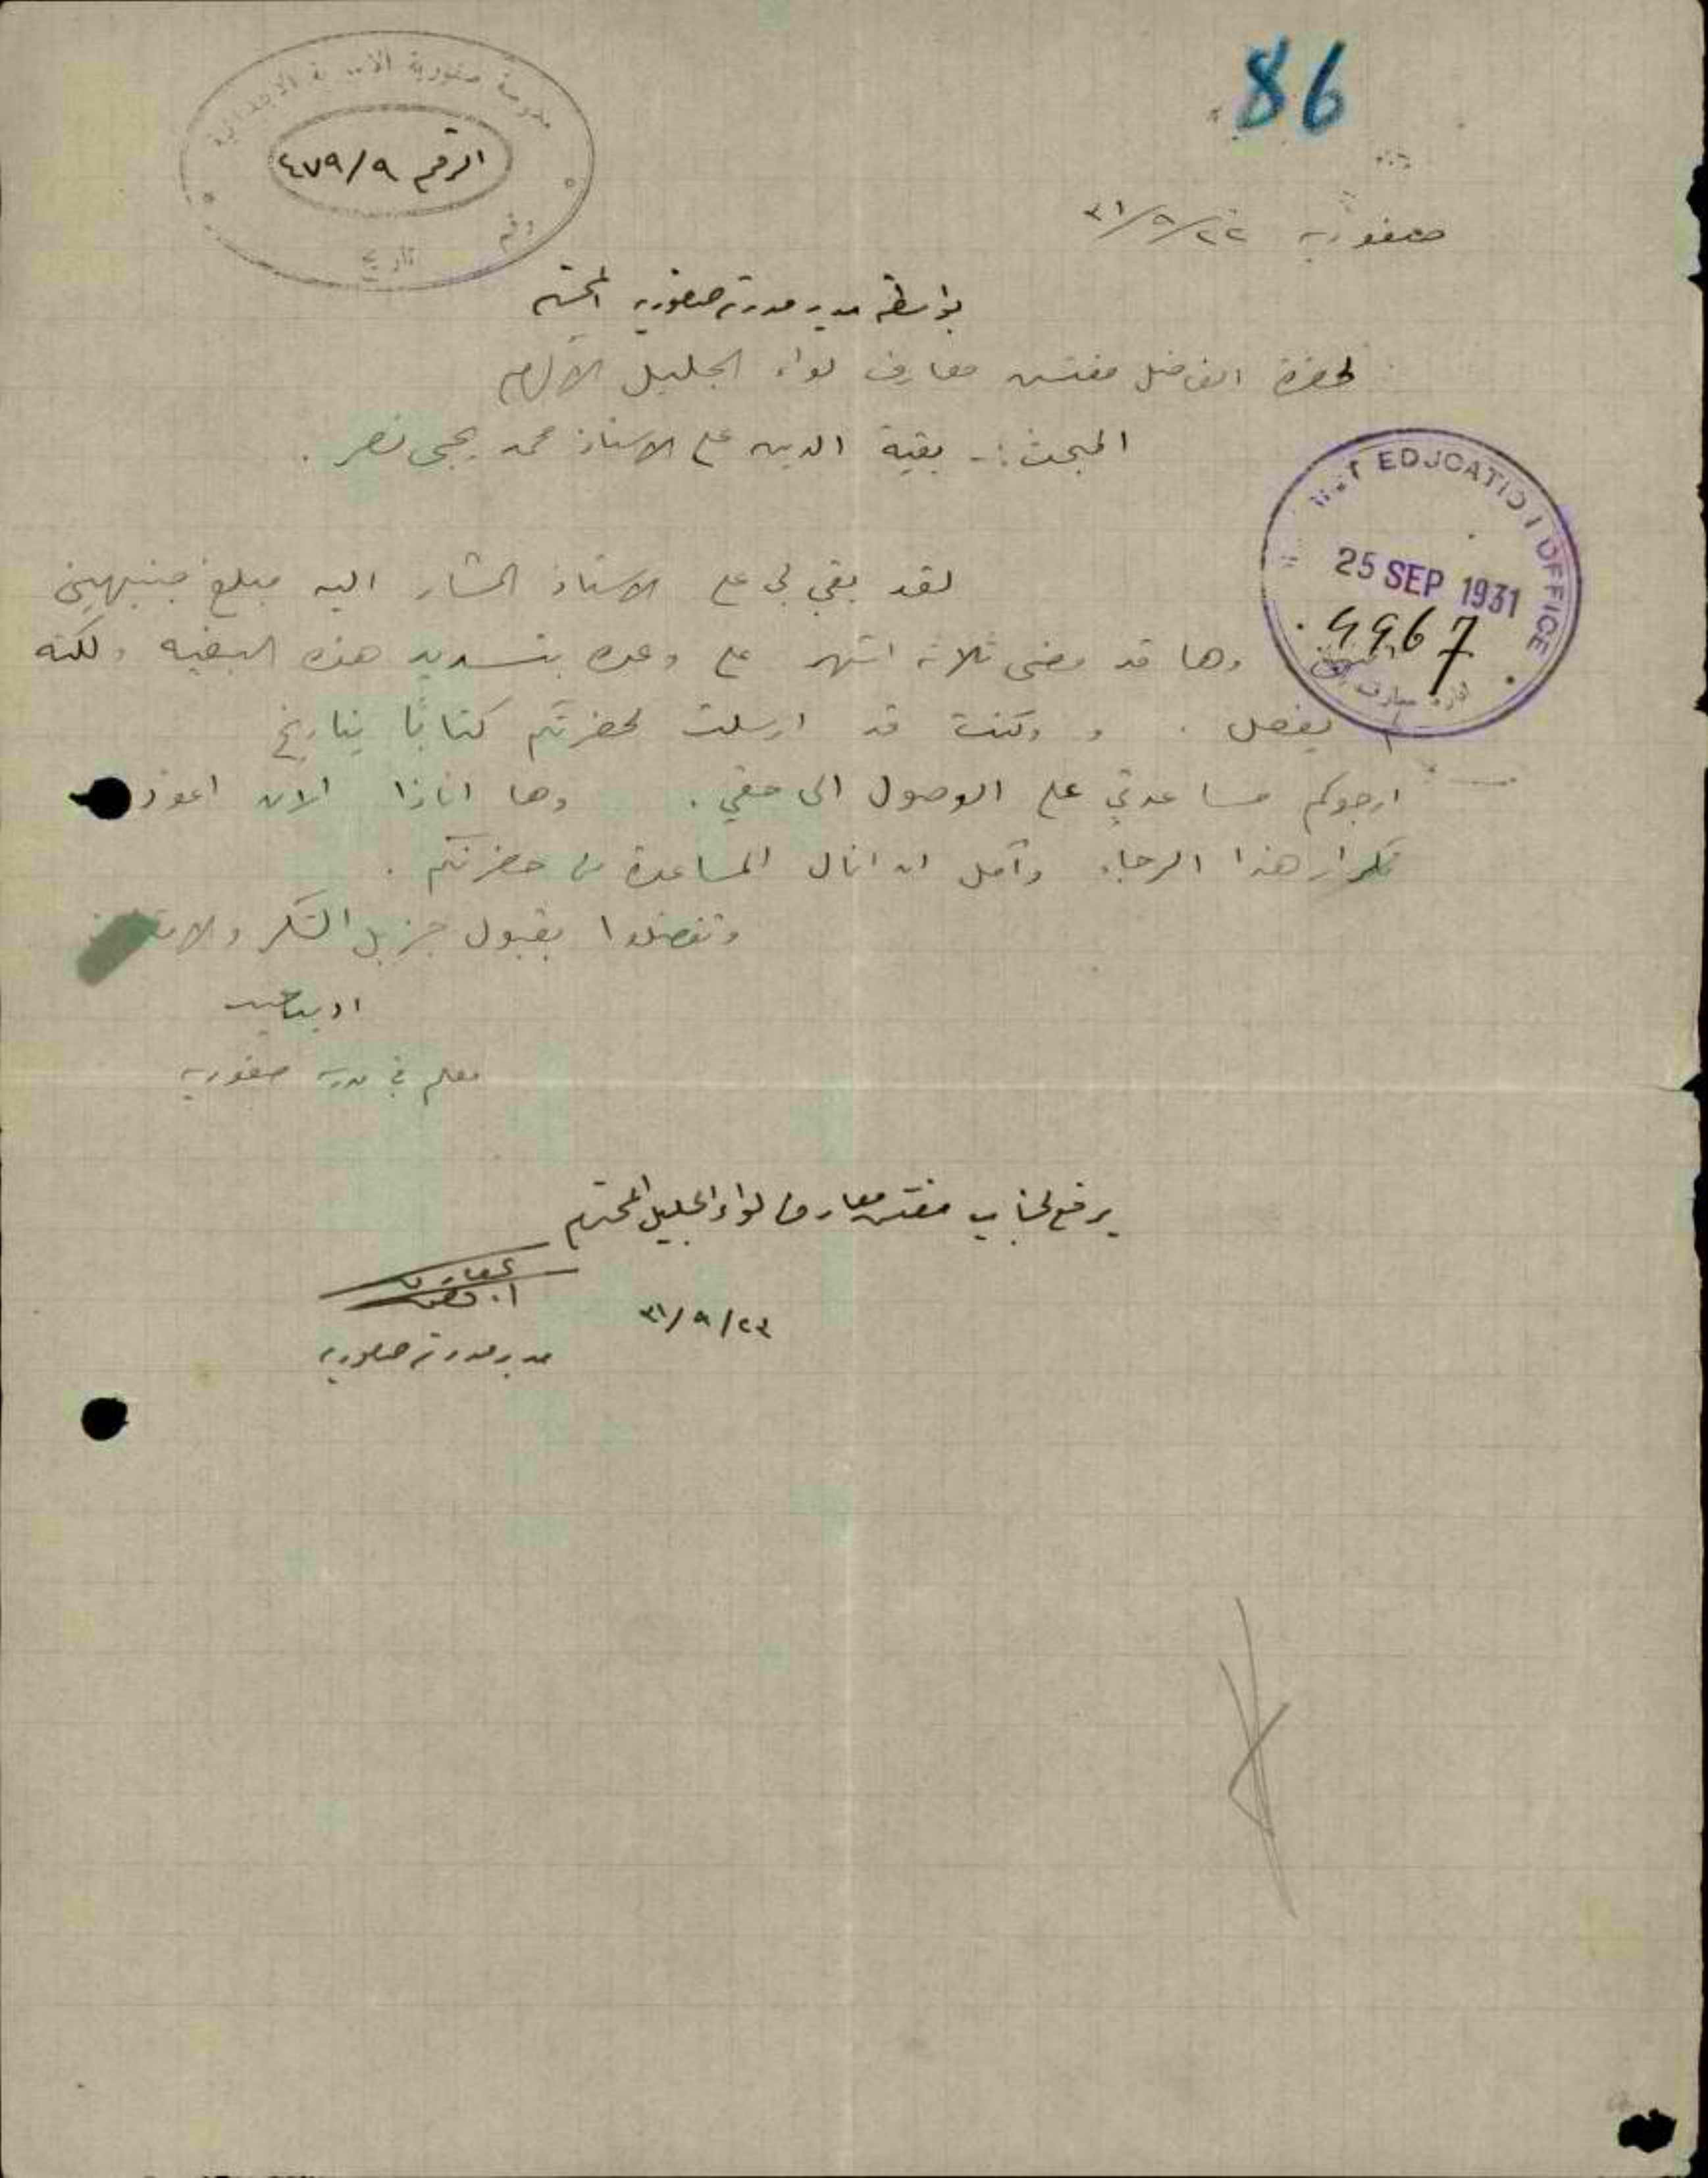 86
مدرسة صفورية الأميرية الابتدائية
الرقم ٤٧٩/٩
رقم
تاريخ
صفورية ٢٢/٩/٣١
بواسطة مدير مدرسة صفورية المحترم
لحضرة الفاضل مفتش معارف لواء الجليل الاكرم
المبحث :- بقية الدين على الاستاذ محمد يحيى نصر .
EDUCATION OFFICE
25 SEP 1931
4967
ادارة معارف
لقد بقي لي على الاستاذ المشار اليه مبلغ جنيهين
وها قد مضى ثلاثة اشهر على وعده بتسديد هذه البقيه ولكنه
لم يفعل . و وكنت قد ارسلت لحضرتكم كتابًا بتاريخ
ارجوكم مساعدتي على الوصول الى حقي . وها انذا الان اعود
تكرار هذا الرجاء وآمل ان انال المساعدة من حضرتكم .
وتفضلوا بقبول جزيل الشكر
معلم في مدرسة صفورية
يرفع لجناب مفتش معارف لواء الجليل المحترم
٢٣/٩/٣١
مدير مدرسة صفورية